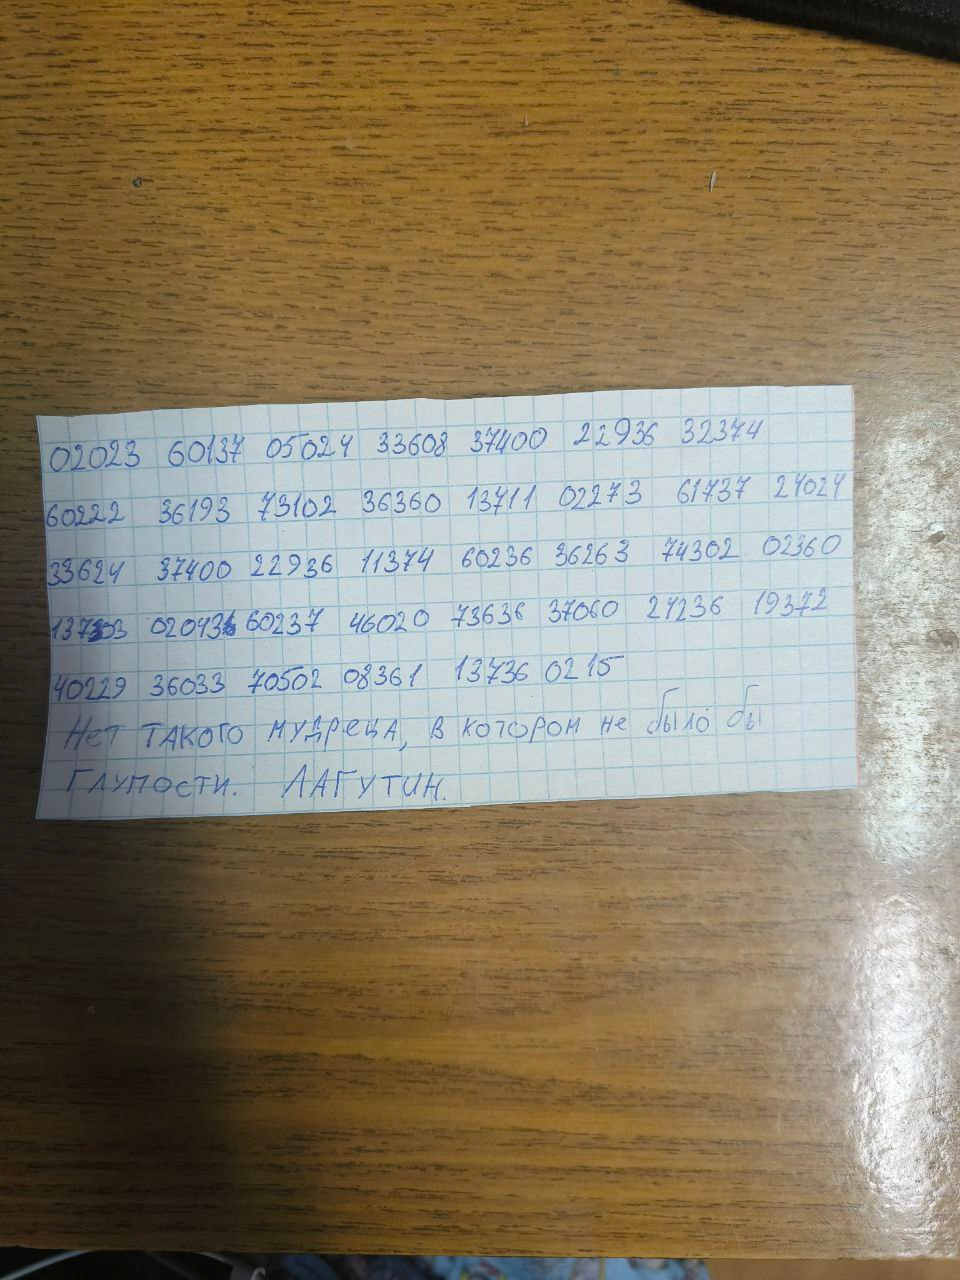 02023 60137 05024 33608 37400 22936 32374
60222 36193 73102 36360 13711 02273 61737 24024
33624 37400 22936 11374 60236 36263 74302 02360
020436 60237 46020 73636 37060 24236 19372
40229 36033 70502 08361 13736 0215
Нет такого мудреца, в котором не было бы
Глупости. ЛАГУТИН.